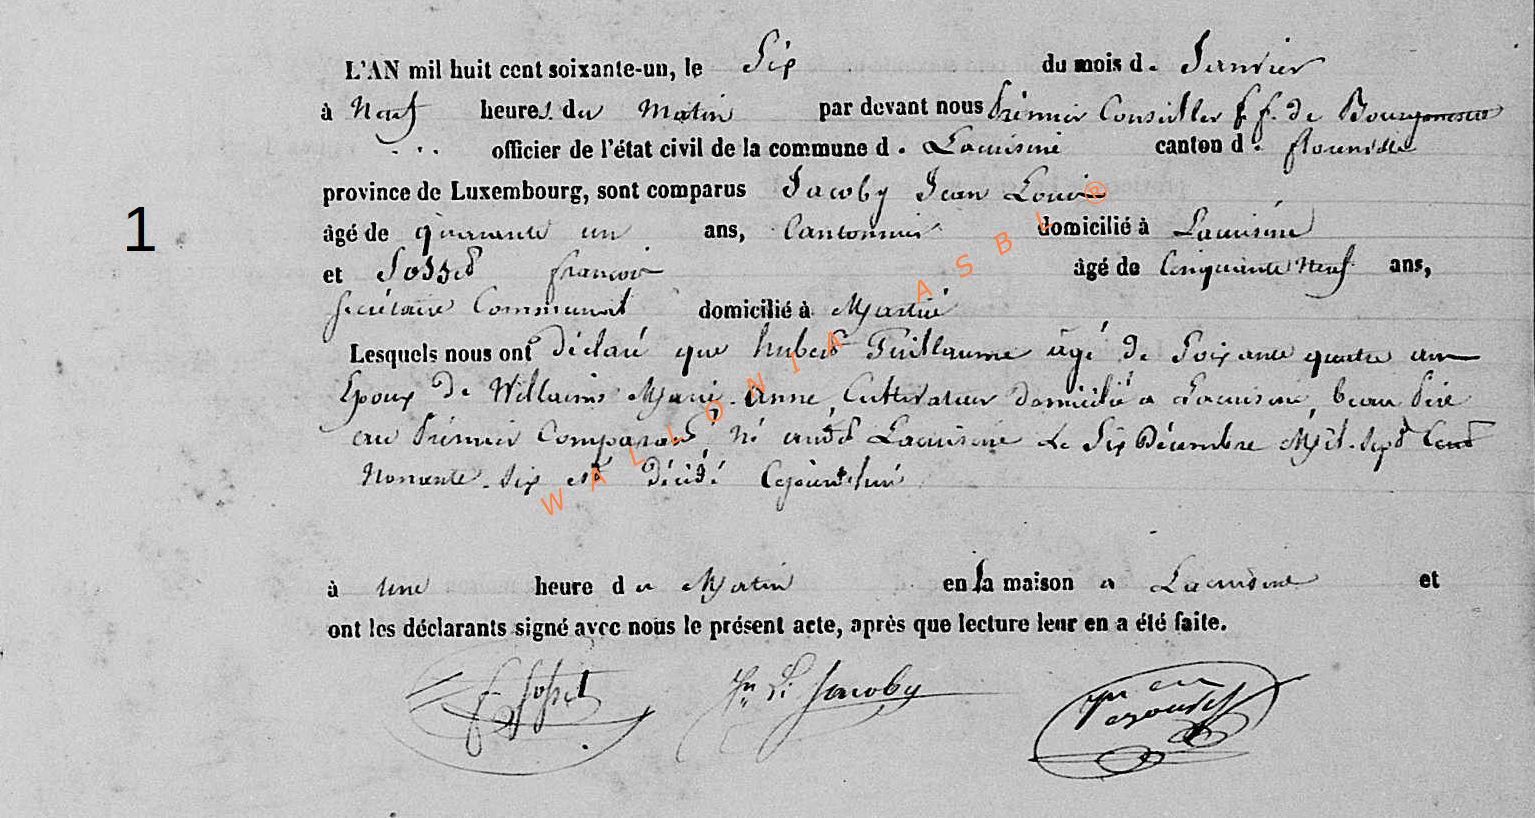 L'AN mil huit cent soixante-un, le Six du mois d. Janvier
à Neuf heures du Matin par devant nous Prémier Conseiller f.f. de Bourgmestre
officier de l'état civil de la commune d. Lacuisine canton d. florenville
province de Luxembourg, sont comparus Jacoby Jean Louis
1
âgé de quarante un ans, Cantonnier domicilié à Lacuisine
et Josset françois âgé de Cinquante Neuf ans,
Sécrétaire Communal domicilié à Martué
Lesquels nous ont déclaré que hubert Guillaume âgé de Soixante quatre ans
Epoux de Willaime Marie, Anne, Cultivateur domicilié à Lacuisine, beau Père
au Prémier Comparant, Né audt Lacuisine le Six Décembre Mil-Sept Cent
Nonante-Six est décédé Cejourd'hui
à une heure du Matin en la maison à Lacuisine et
ont les déclarants signé avec nous le présent acte, après que lecture leur en a été faite.
Jn Ls Jacoby
WALLONIA ASBL ®